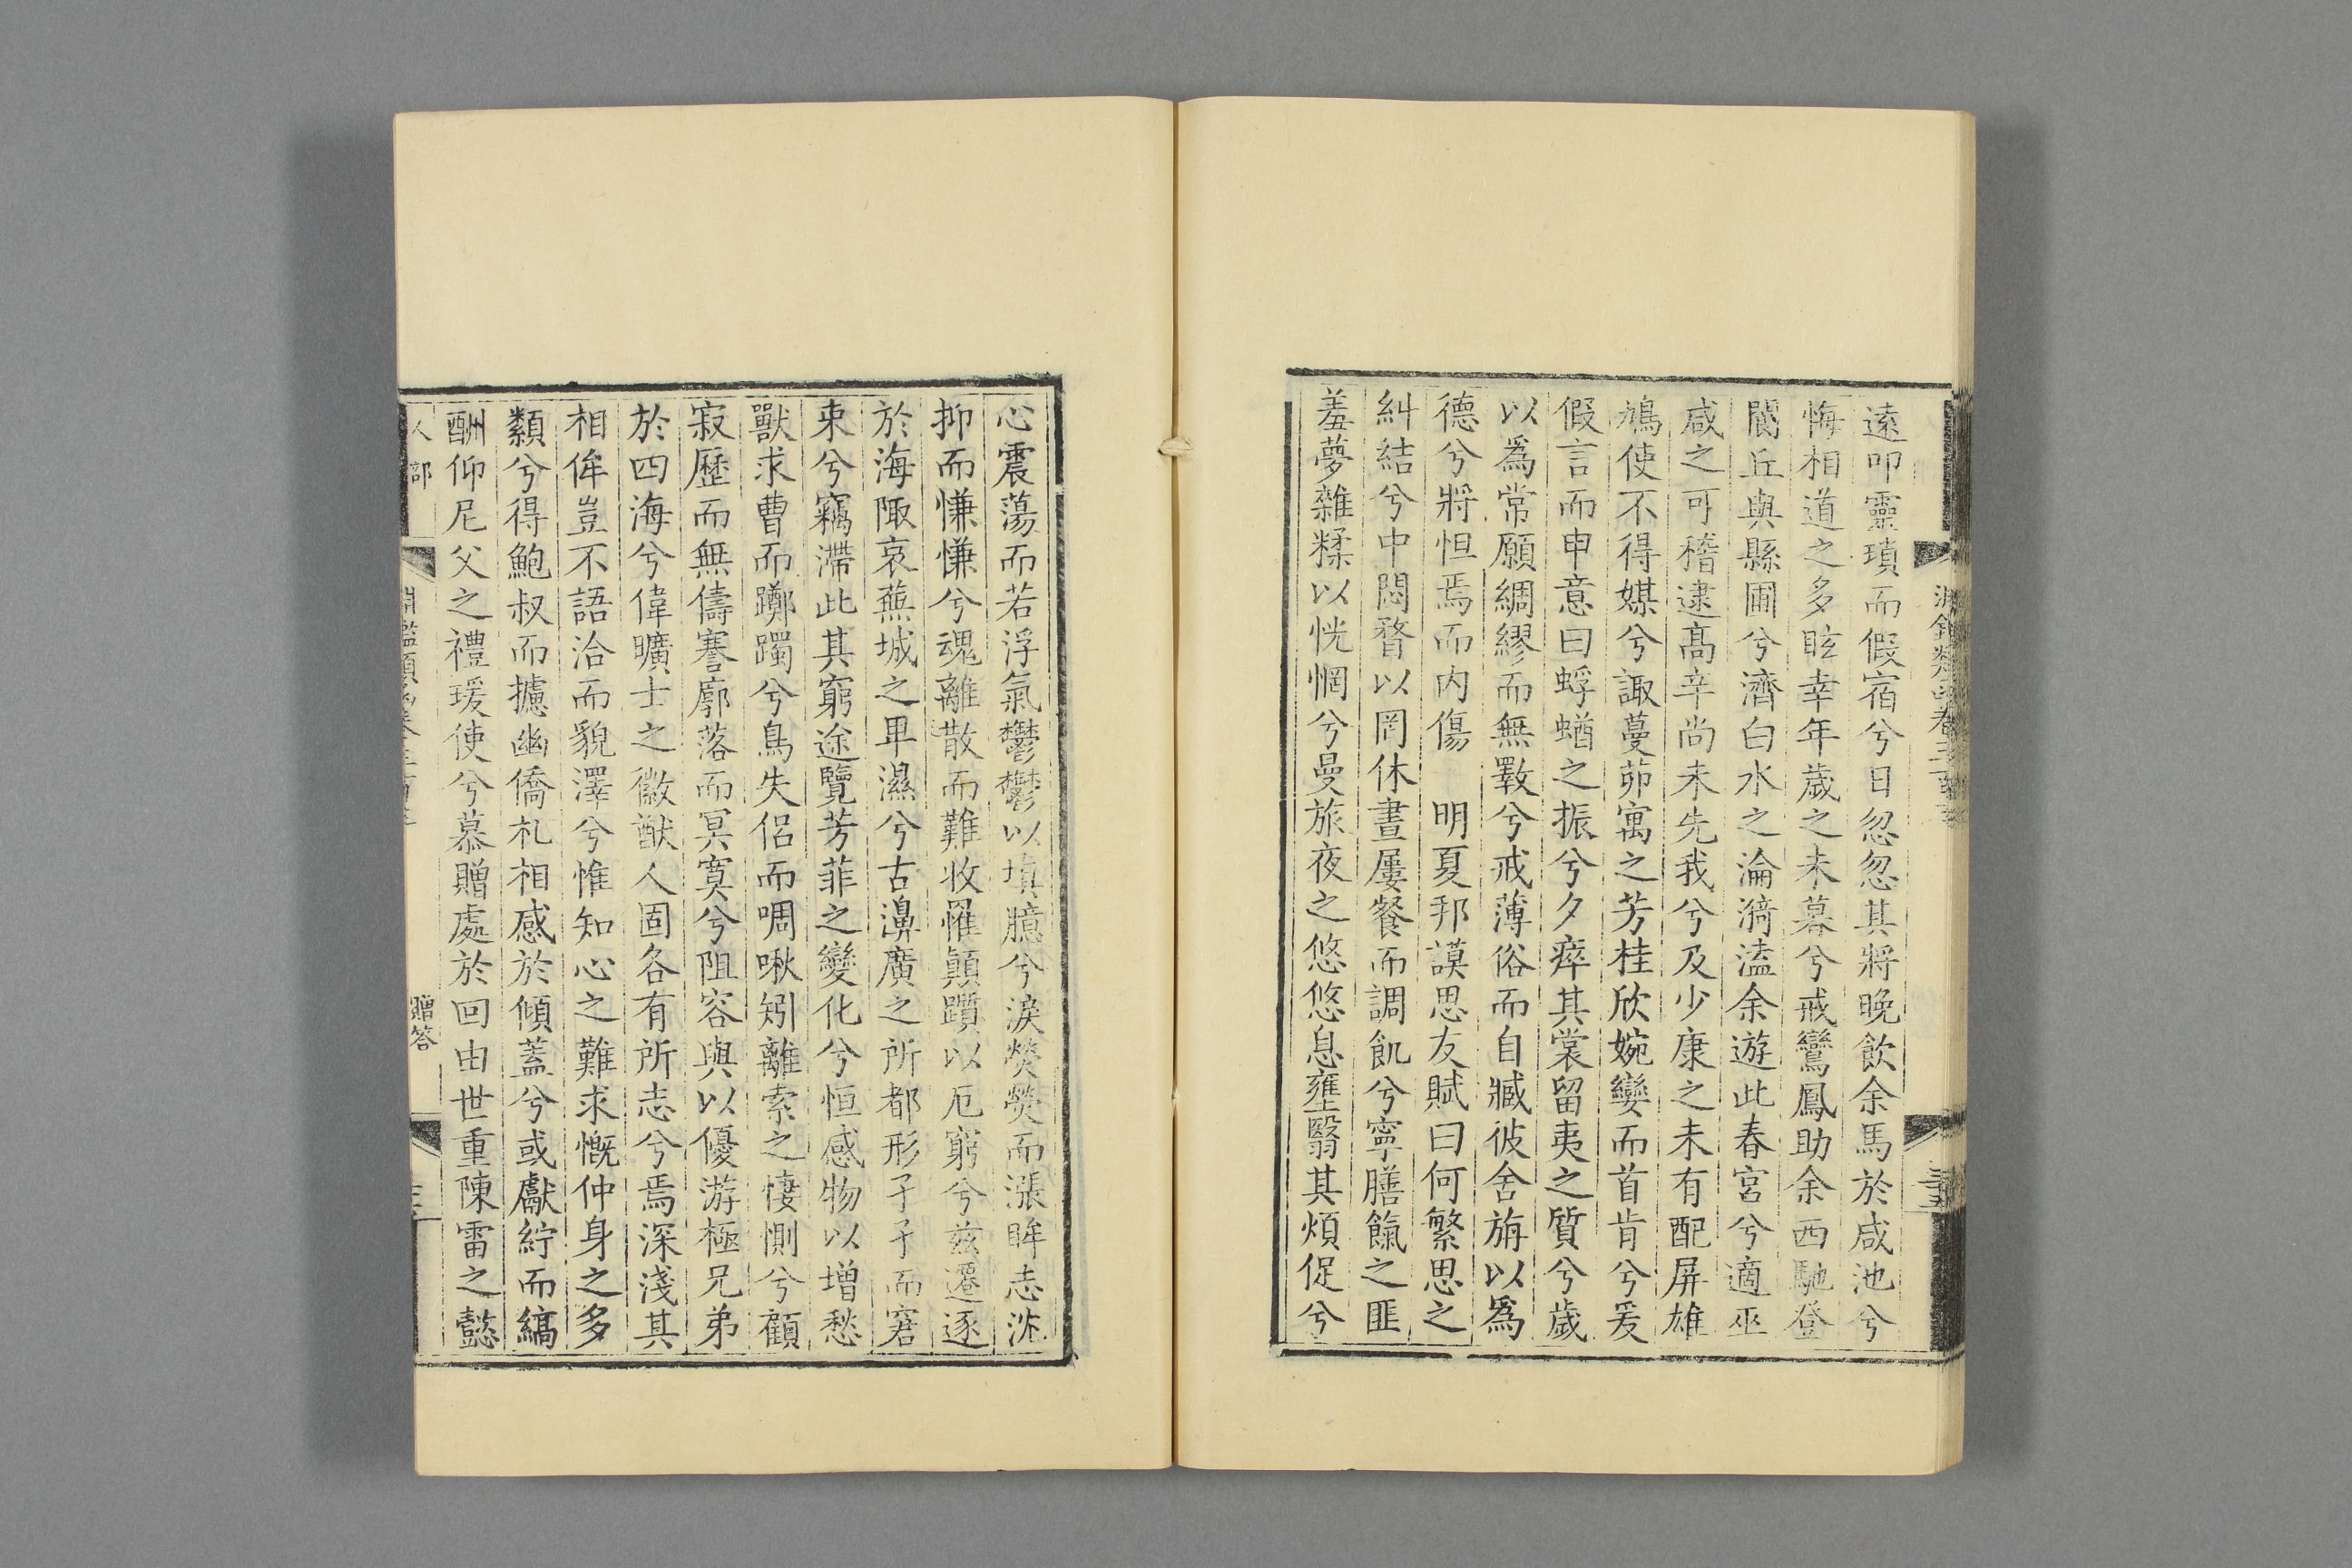 遠叩靈瑣而假宿兮日忽忽其將晚飲余馬於咸池兮
悔相道之多眩幸年歲之未暮兮戒鸞鳳助余西馳登
閬丘與縣圃兮濟白水之淪漪溘余遊此春宮兮適巫
咸之可稽逮高辛尚未先我兮及少康之未有配屏雄
鳩使不得媒兮諏蔓茆寓之芳桂欣婉孌而首肯兮爰
假言而申意曰蜉蝤之振兮夕瘁其裳留夷之質兮歲
以爲常願綢繆而無斁兮戒薄俗而自臧彼舍旃以爲
德兮將怛焉而内傷　明夏邦謨思友賦曰何繁思之
糾結兮中悶瞀以罔休晝屢餐而調飢兮寧膳餼之匪
羞夢雜糅以恍惘兮曼旅夜之悠悠息壅翳其煩促兮
心震蕩而若浮氣鬱鬱以填臆兮淚熒熒而漲眸志沈
抑而慊慊兮魂離散而難收罹顛躓以厄窮兮茲遷逐
於海陬哀蕪城之卑濕兮古濞廣之所都形孑孑而窘
束兮竊滯此其窮途覽芳菲之變化兮恒感物以增愁
獸求曹而躑躅兮鳥失侶而啁啾矧離索之悽惻兮顧
寂歷而無儔謇廓落而冥寞兮阻容與以優游極兄弟
於四海兮偉曠士之徽猷人固各有所志兮焉深淺其
相侔豈不語洽而貌澤兮惟知心之難求慨仲身之多
纇兮得鮑叔而攄幽僑札相感於傾蓋兮或獻紵而縞
酬仰尼父之禮瑗使兮慕贈處於回由世重陳雷之懿
人部
淵鑑類函卷三百
贈答